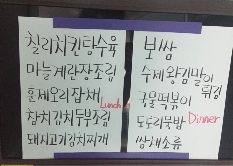 칠리치킨탕수육
마늘계란장조림
훈제오리잡채
Lunch
참치김치두부조림
돼지고기김치찌개
보쌈
수제왕김말이
튀김
국물떡볶이
도토리묵밥
Dinner
쌈채소류